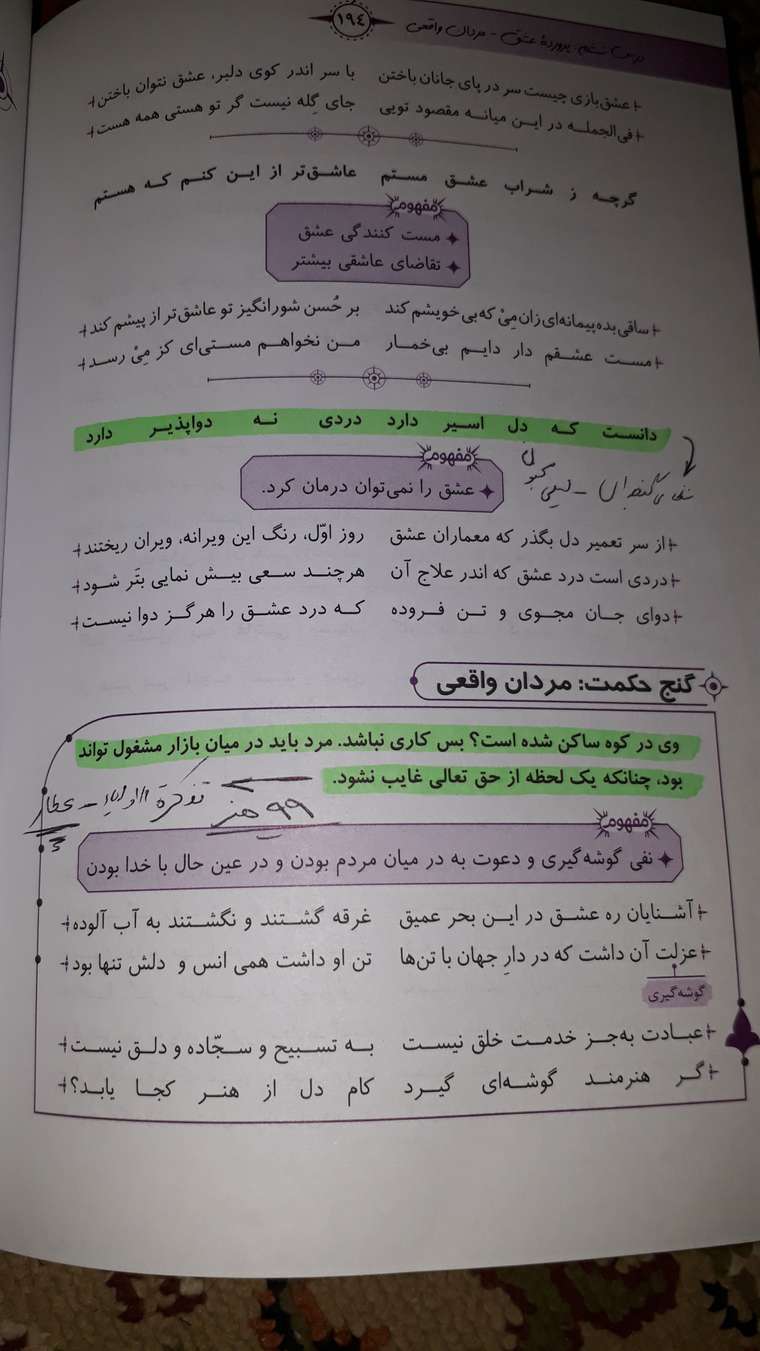 درس ششم: پروردهٔ عشق - مردان واقعی
١٩٤
عشق‌بازی چیست سر در پای جانان باختن با سر اندر کوی دلبر، عشق نتوان باختن
فی‌الجمله در این میانه مقصود تویی جای گِله نیست گر تو هستی همه هست
گرچه ز شراب عشق مستم عاشق‌تر از این کنم که هستم
مفهوم
مست کنندگی عشق
تقاضای عاشقی بیشتر
ساقی بده پیمانه‌ای زان مِیْ که بی‌خویشم کند بر حُسن شورانگیز تو عاشق‌تر از پیشم کند
مست عشقم دار دایم بی‌خمار من نخواهم مستی‌ای کز مِیْ رسد
دانست که دل اسیر دارد دردی نه دواپذیر دارد
مفهوم
عشق را نمی‌توان درمان کرد.
از سر تعمیر دل بگذر که معماران عشق روز اوّل، رنگ این ویرانه، ویران ریختند
دردی است درد عشق که اندر علاج آن هرچند سعی بیش نمایی بتَر شود
دوای جان مجوی و تن فروده که درد عشق را هرگز دوا نیست
گنج حکمت: مردان واقعی
وی در کوه ساکن شده است؟ بس کاری نباشد. مرد باید در میان بازار مشغول تواند
بود، چنانکه یک لحظه از حق تعالی غایب نشود.
تذکرة الاولیاء - عطار
۹۹ هنر
مفهوم
نفی گوشه‌گیری و دعوت به در میان مردم بودن و در عین حال با خدا بودن
آشنایان ره عشق در این بحر عمیق غرقه گشتند و نگشتند به آب آلوده
عزلت آن داشت که در دارِ جهان با تن‌ها تن او داشت همی انس و دلش تنها بود
گوشه‌گیری
عبادت به‌جز خدمت خلق نیست به تسبیح و سجّاده و دلق نیست
گر هنرمند گوشه‌ای گیرد کام دل از هنر کجا یابد؟